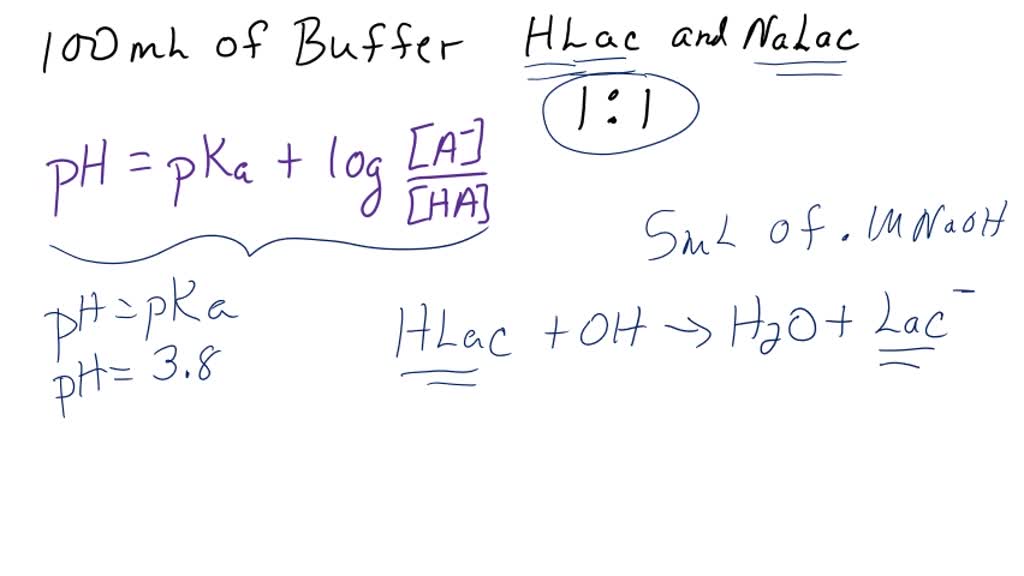 100mL of Buffer HLac and NaLac
1:1
pH = pKa + log [A-]/[HA]
5mL of .1M NaOH
pH = pKa
HLac + OH → H2O + Lac-
pH = 3.8